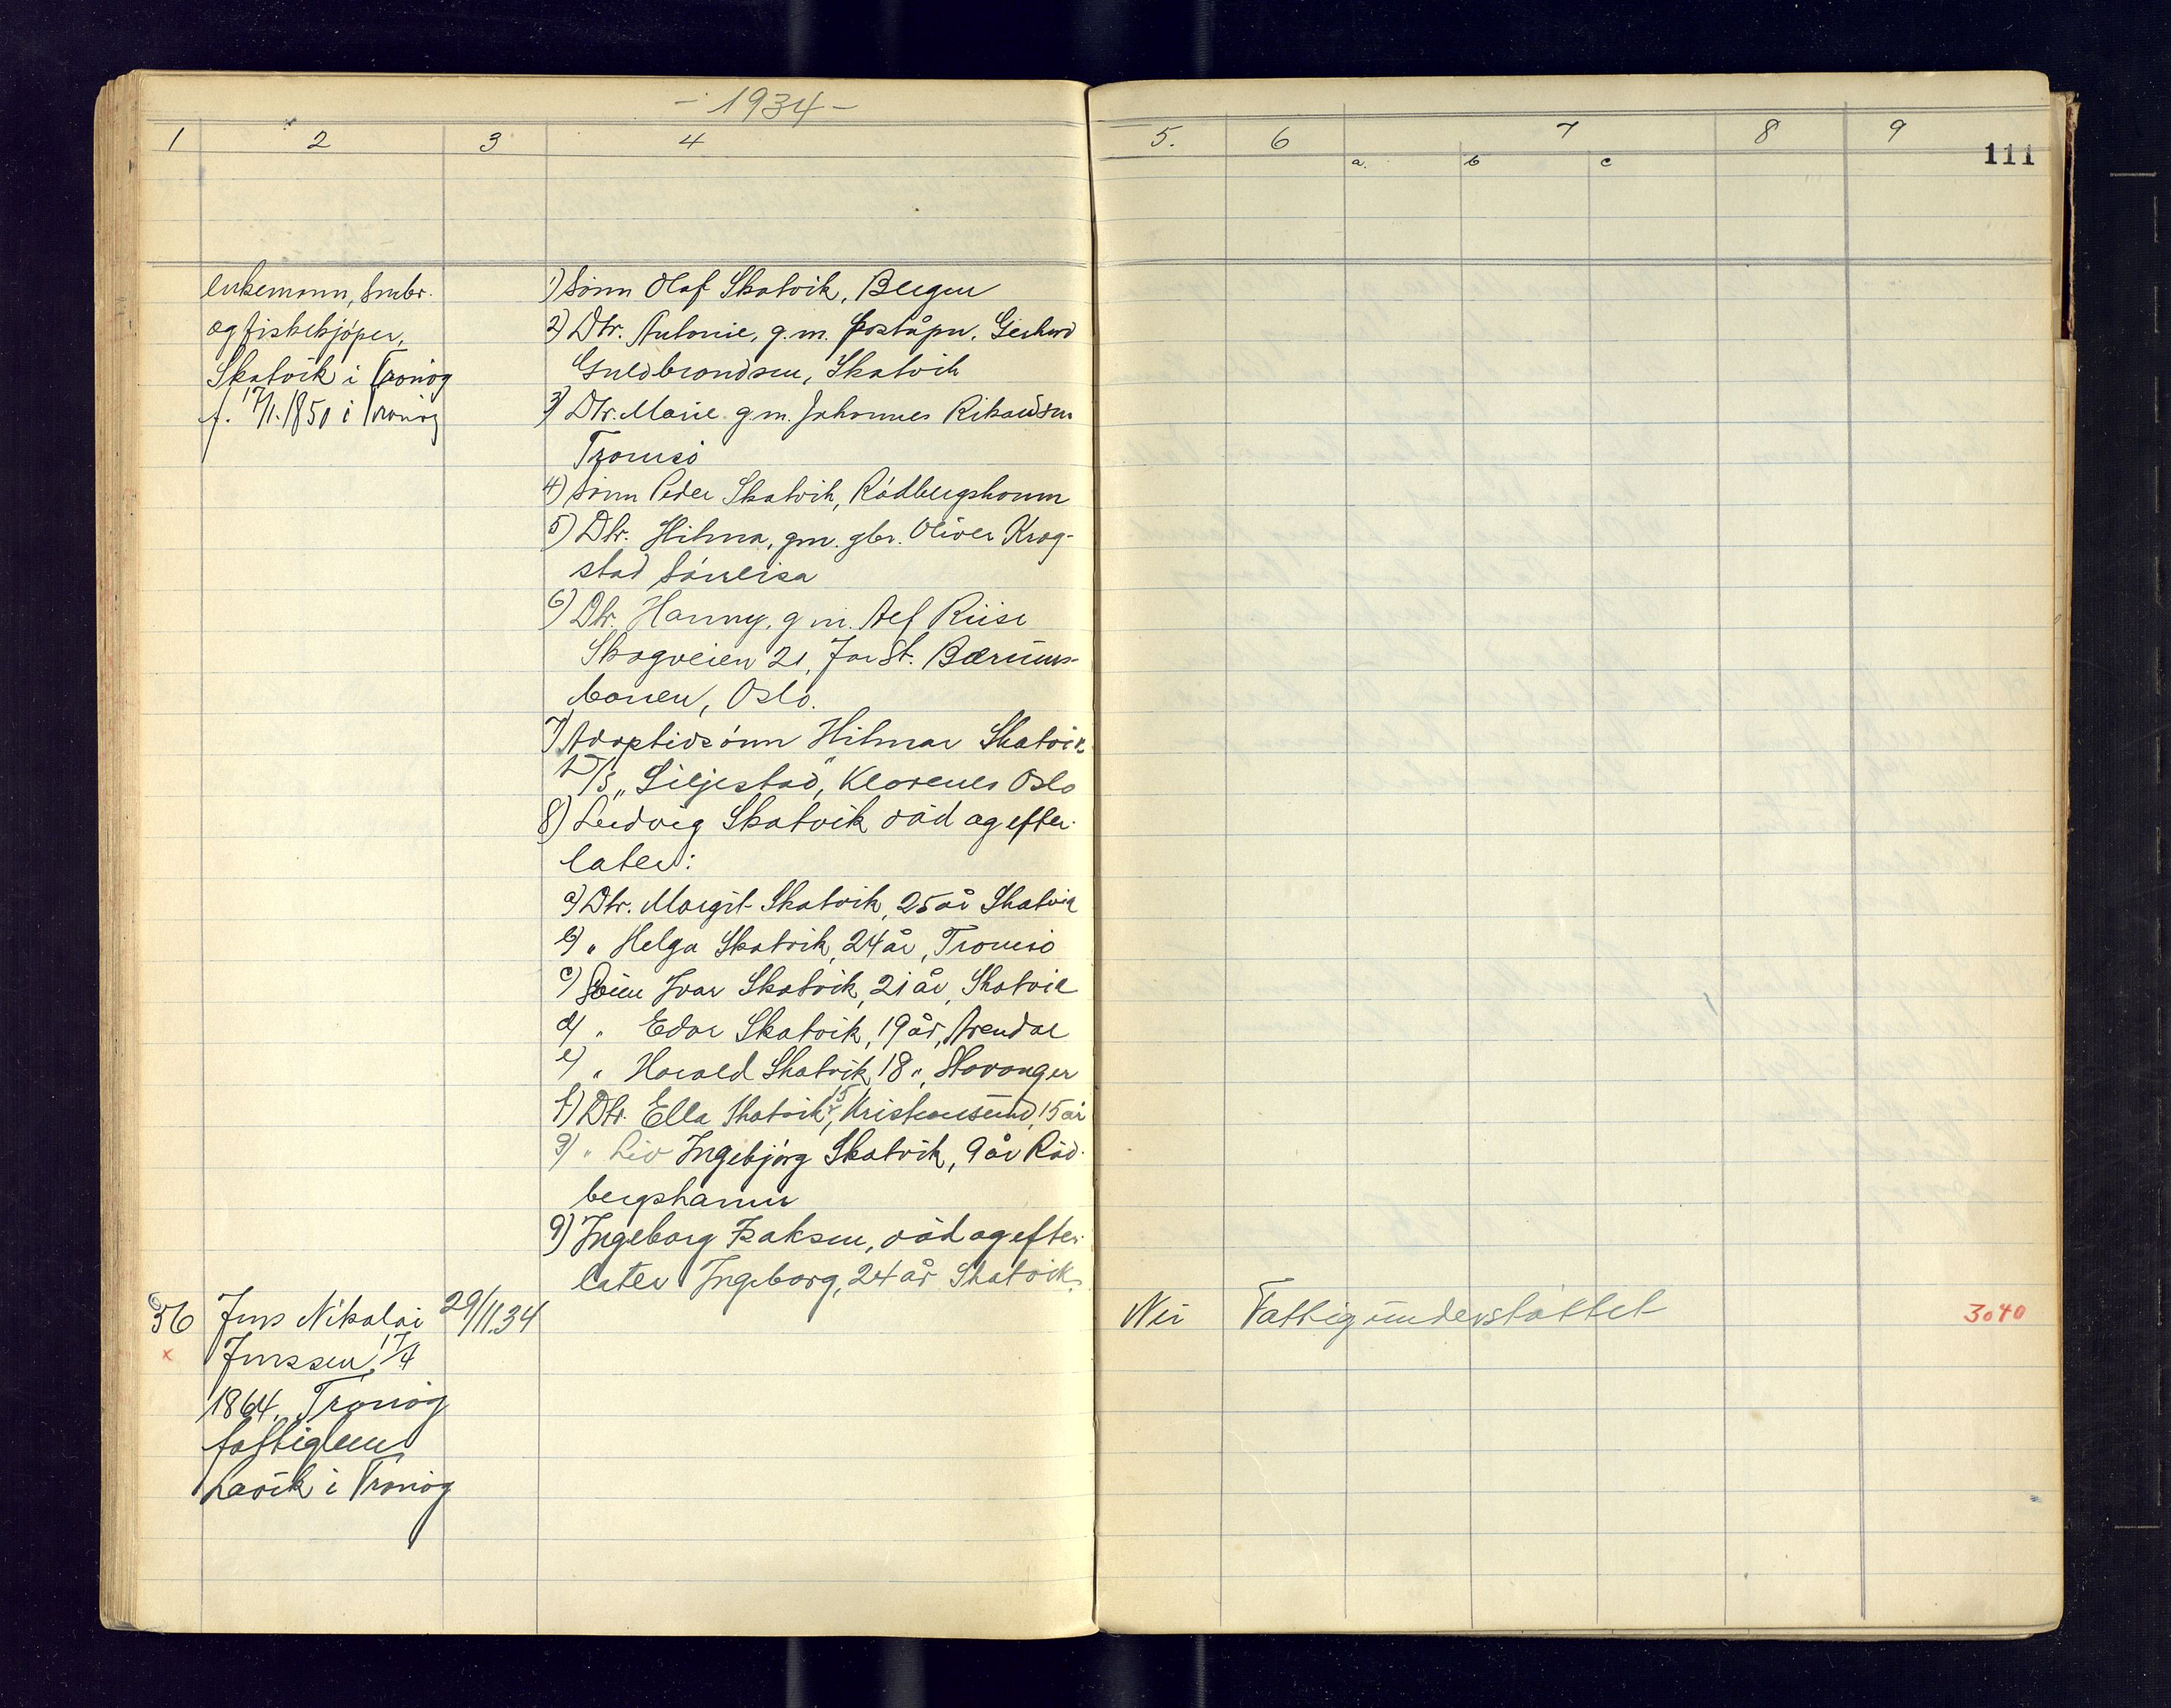 - 1934 -
1 2 3 4
5. 6 7 8 9
a. b c
111
enkemann, småbr.
og fiskekjøper,
Skatvik i Tranøy
f. 17/1.1850 i Tranøy
1) Sønn Olaf Skatvik, Bergen
2) Dtr. Antonie, g.m. poståpn. Gerhard
Guldbrandsen, Skatvik
3) Dtr. Marie g.m. Johannes Rikardsen
Tromsø
4) Sønn Peder Skatvik, Rødbergshamn
5) Dtr. Hilma, gm. gbr. Oliver Krog-
stad Sørreisa
6) Dtr. Hanny, g.m. Alf Riise
Skogveien 21, Jar St. Bærums-
banen, Oslo.
7) Adoptivsønn Hilmar Skatvik
D/S „Siljestad", Klaveness Oslo
8) Ludvig Skatvik död og efter-
later:
a) Dtr. Margit Skatvik, 25 år Skatvik
b) " Helga Skatvik, 24 år, Tromsø
c) Sønn Ivar Skatvik, 21 år, Skatvik
d) " Edor Skatvik, 19 år, Arendal
e) " Harald Skatvik, 18 ", Stavanger
f) Dtr. Ella Skatvik, Kristiansund, 15 år
g) " Liv Ingebjørg Skatvik, 9 år Rød-
bergshamn
9) Ingeborg Isaksen, död og efter-
later Ingeborg, 24 år Skatvik.
56 Jens Nikolai 29/11.34 Nei Fattigunderstøttet 3040
x Jenssen, 17/4
1864, Tranøy
fattiglem
Lavik i Tranøy